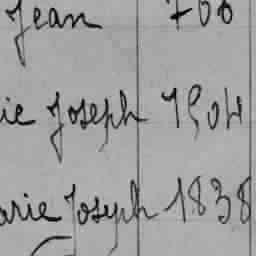 Jean 766
ie Joseph 1904
arie Joseph 1838